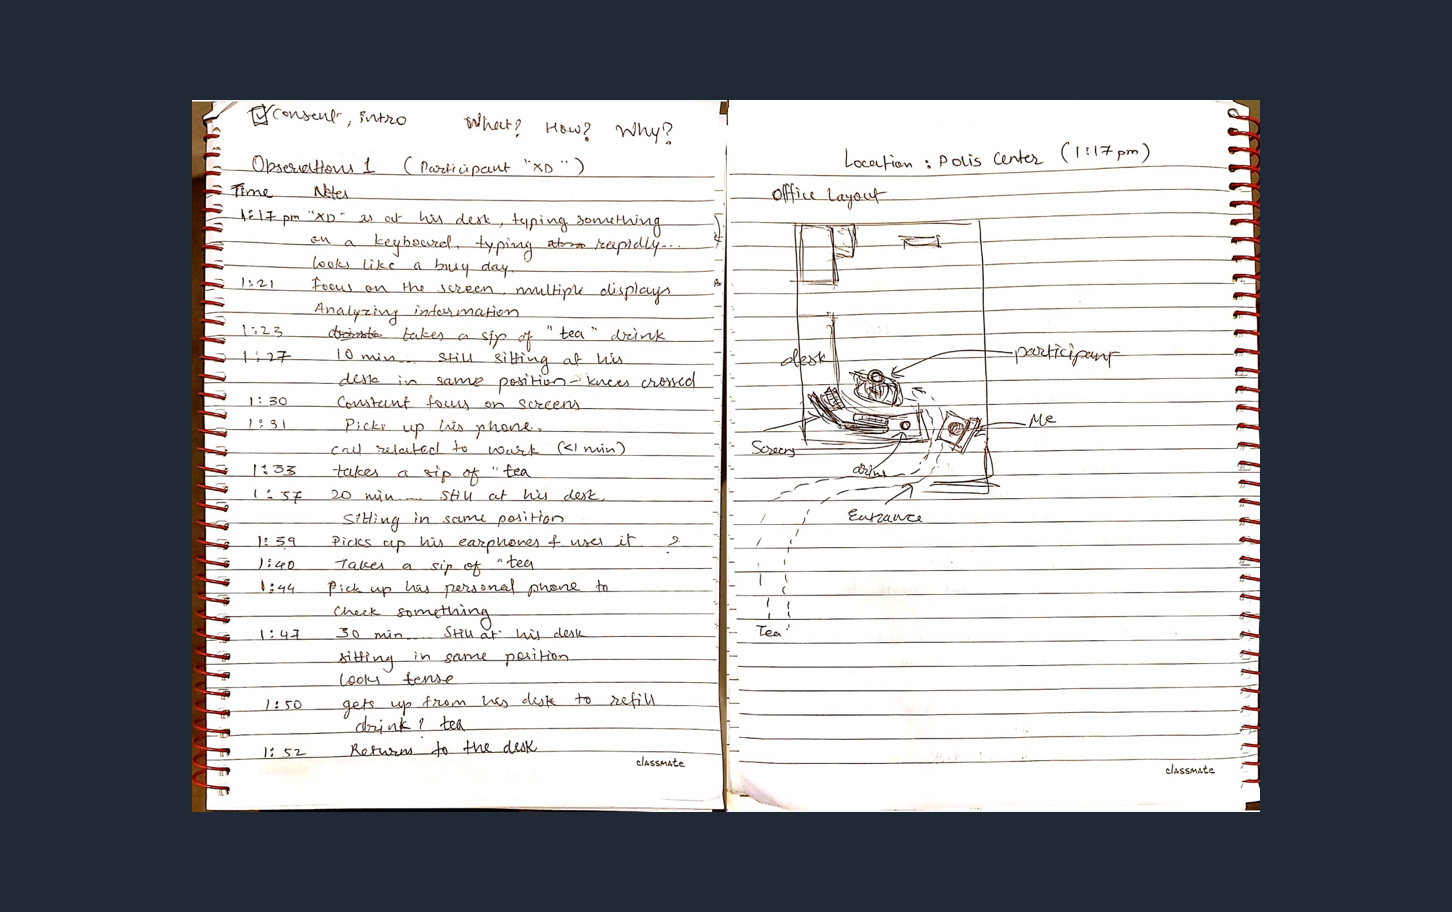 consent, intro
What? How? Why?
Observations 1 (Participant "XD")
Time Notes
1:17 pm "XD" is at his desk, typing something
on a keyboard, typing rapidly...
looks like a busy day.
1:21 focus on the screen, multiple displays
Analyzing information
1:23 takes a sip of "tea" drink
1:27 10 min.... still sitting at his
desk in same position - knees crossed
1:30 Constant focus on screens
1:31 Picks up his phone.
call related to work (<1 min)
1:33 takes a sip of "tea
1:37 20 min.... still at his desk.
sitting in same position
1:39 Picks up his earphones & uses it ?
1:40 Takes a sip of "tea
1:44 Pick up his personal phone to
check something
1:47 30 min.... Still at his desk
sitting in same position
looks tense
1:50 gets up from his desk to refill
drink? tea
1:52 Returns to the desk
classmate
Location : Polis Center (1:17 pm)
Office Layout
desk
participant
Me
Screens
drink
Entrance
Tea
classmate